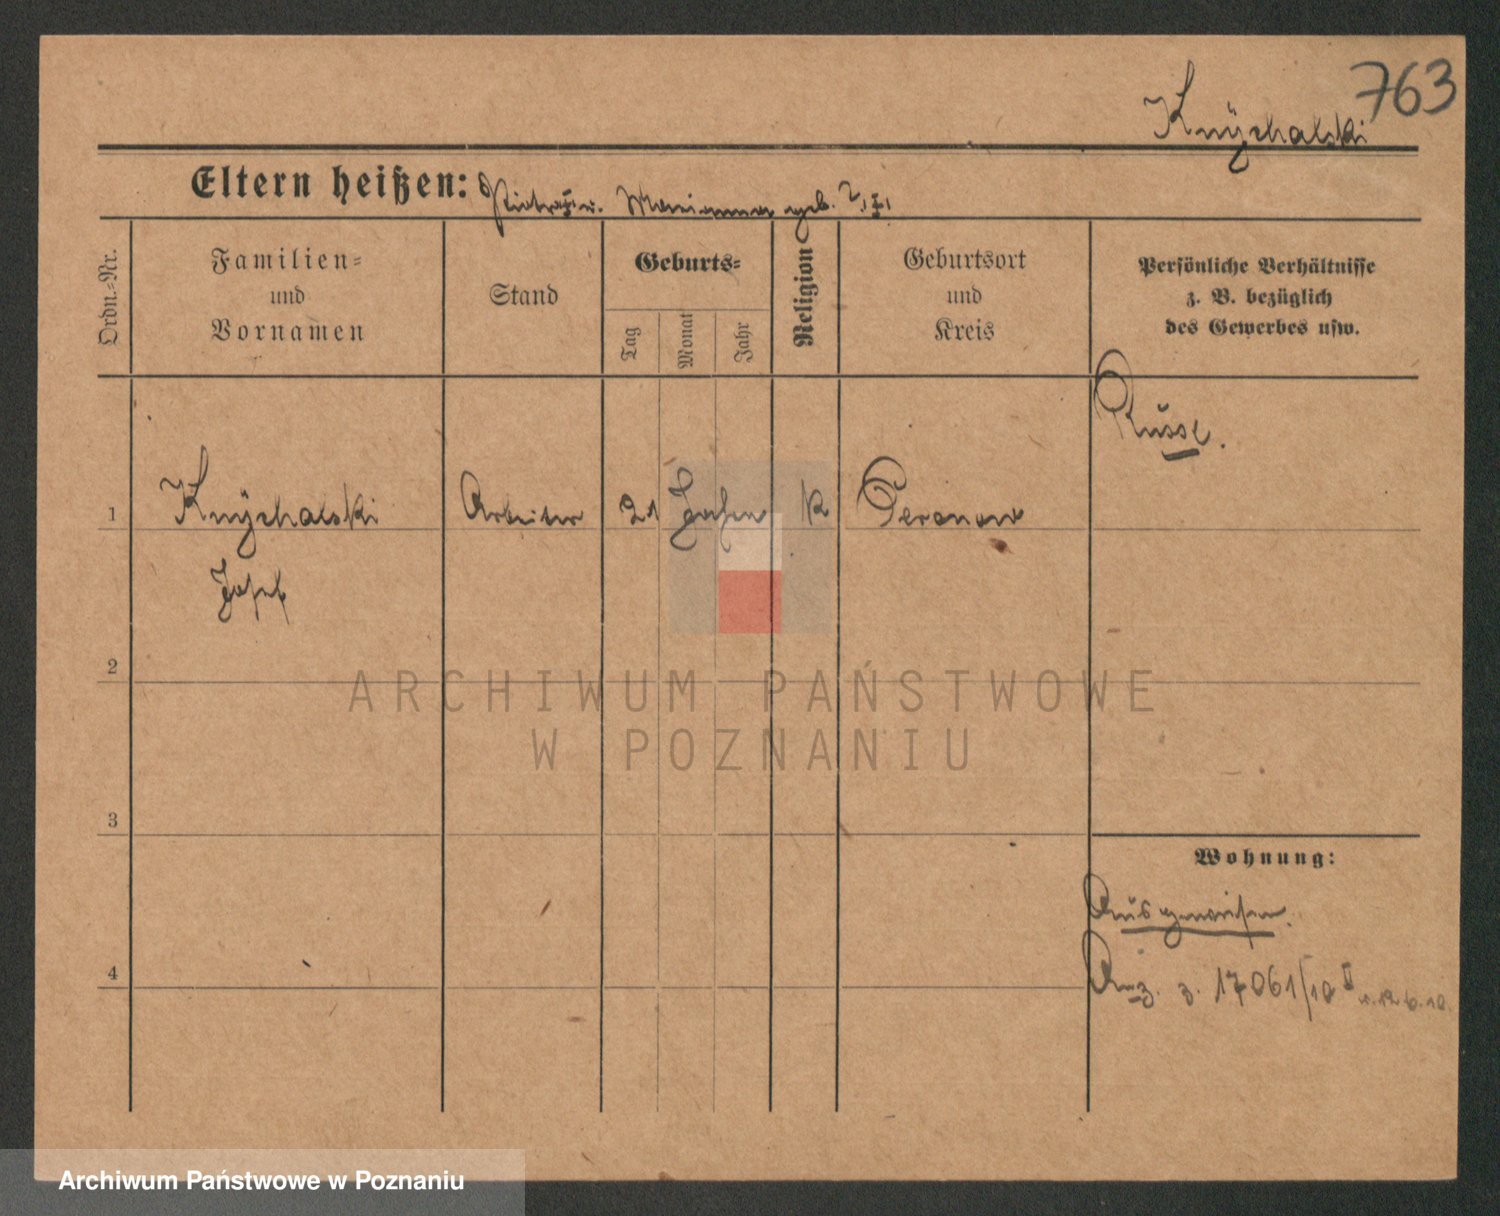 763
Knÿchalski
Eltern heißen: Marianna geb.
Ordn.-Nr.
Familien-
und
Vornamen
Stand
Geburts-
Tag
Monat
Jahr
Religion
Geburtsort
und
Kreis
Persönliche Verhältnisse
z. B. bezüglich
des Gewerbes usw.
Russe.
1 Knÿchalski Arbeiter 21 Jahre K
Josef
2
3
4
Wohnung:
Ausgewiesen.
Anz. z. 17061/10 II v. 12.6.10.
ARCHIWUM PAŃSTWOWE
W POZNANIU
Archiwum Państwowe w Poznaniu